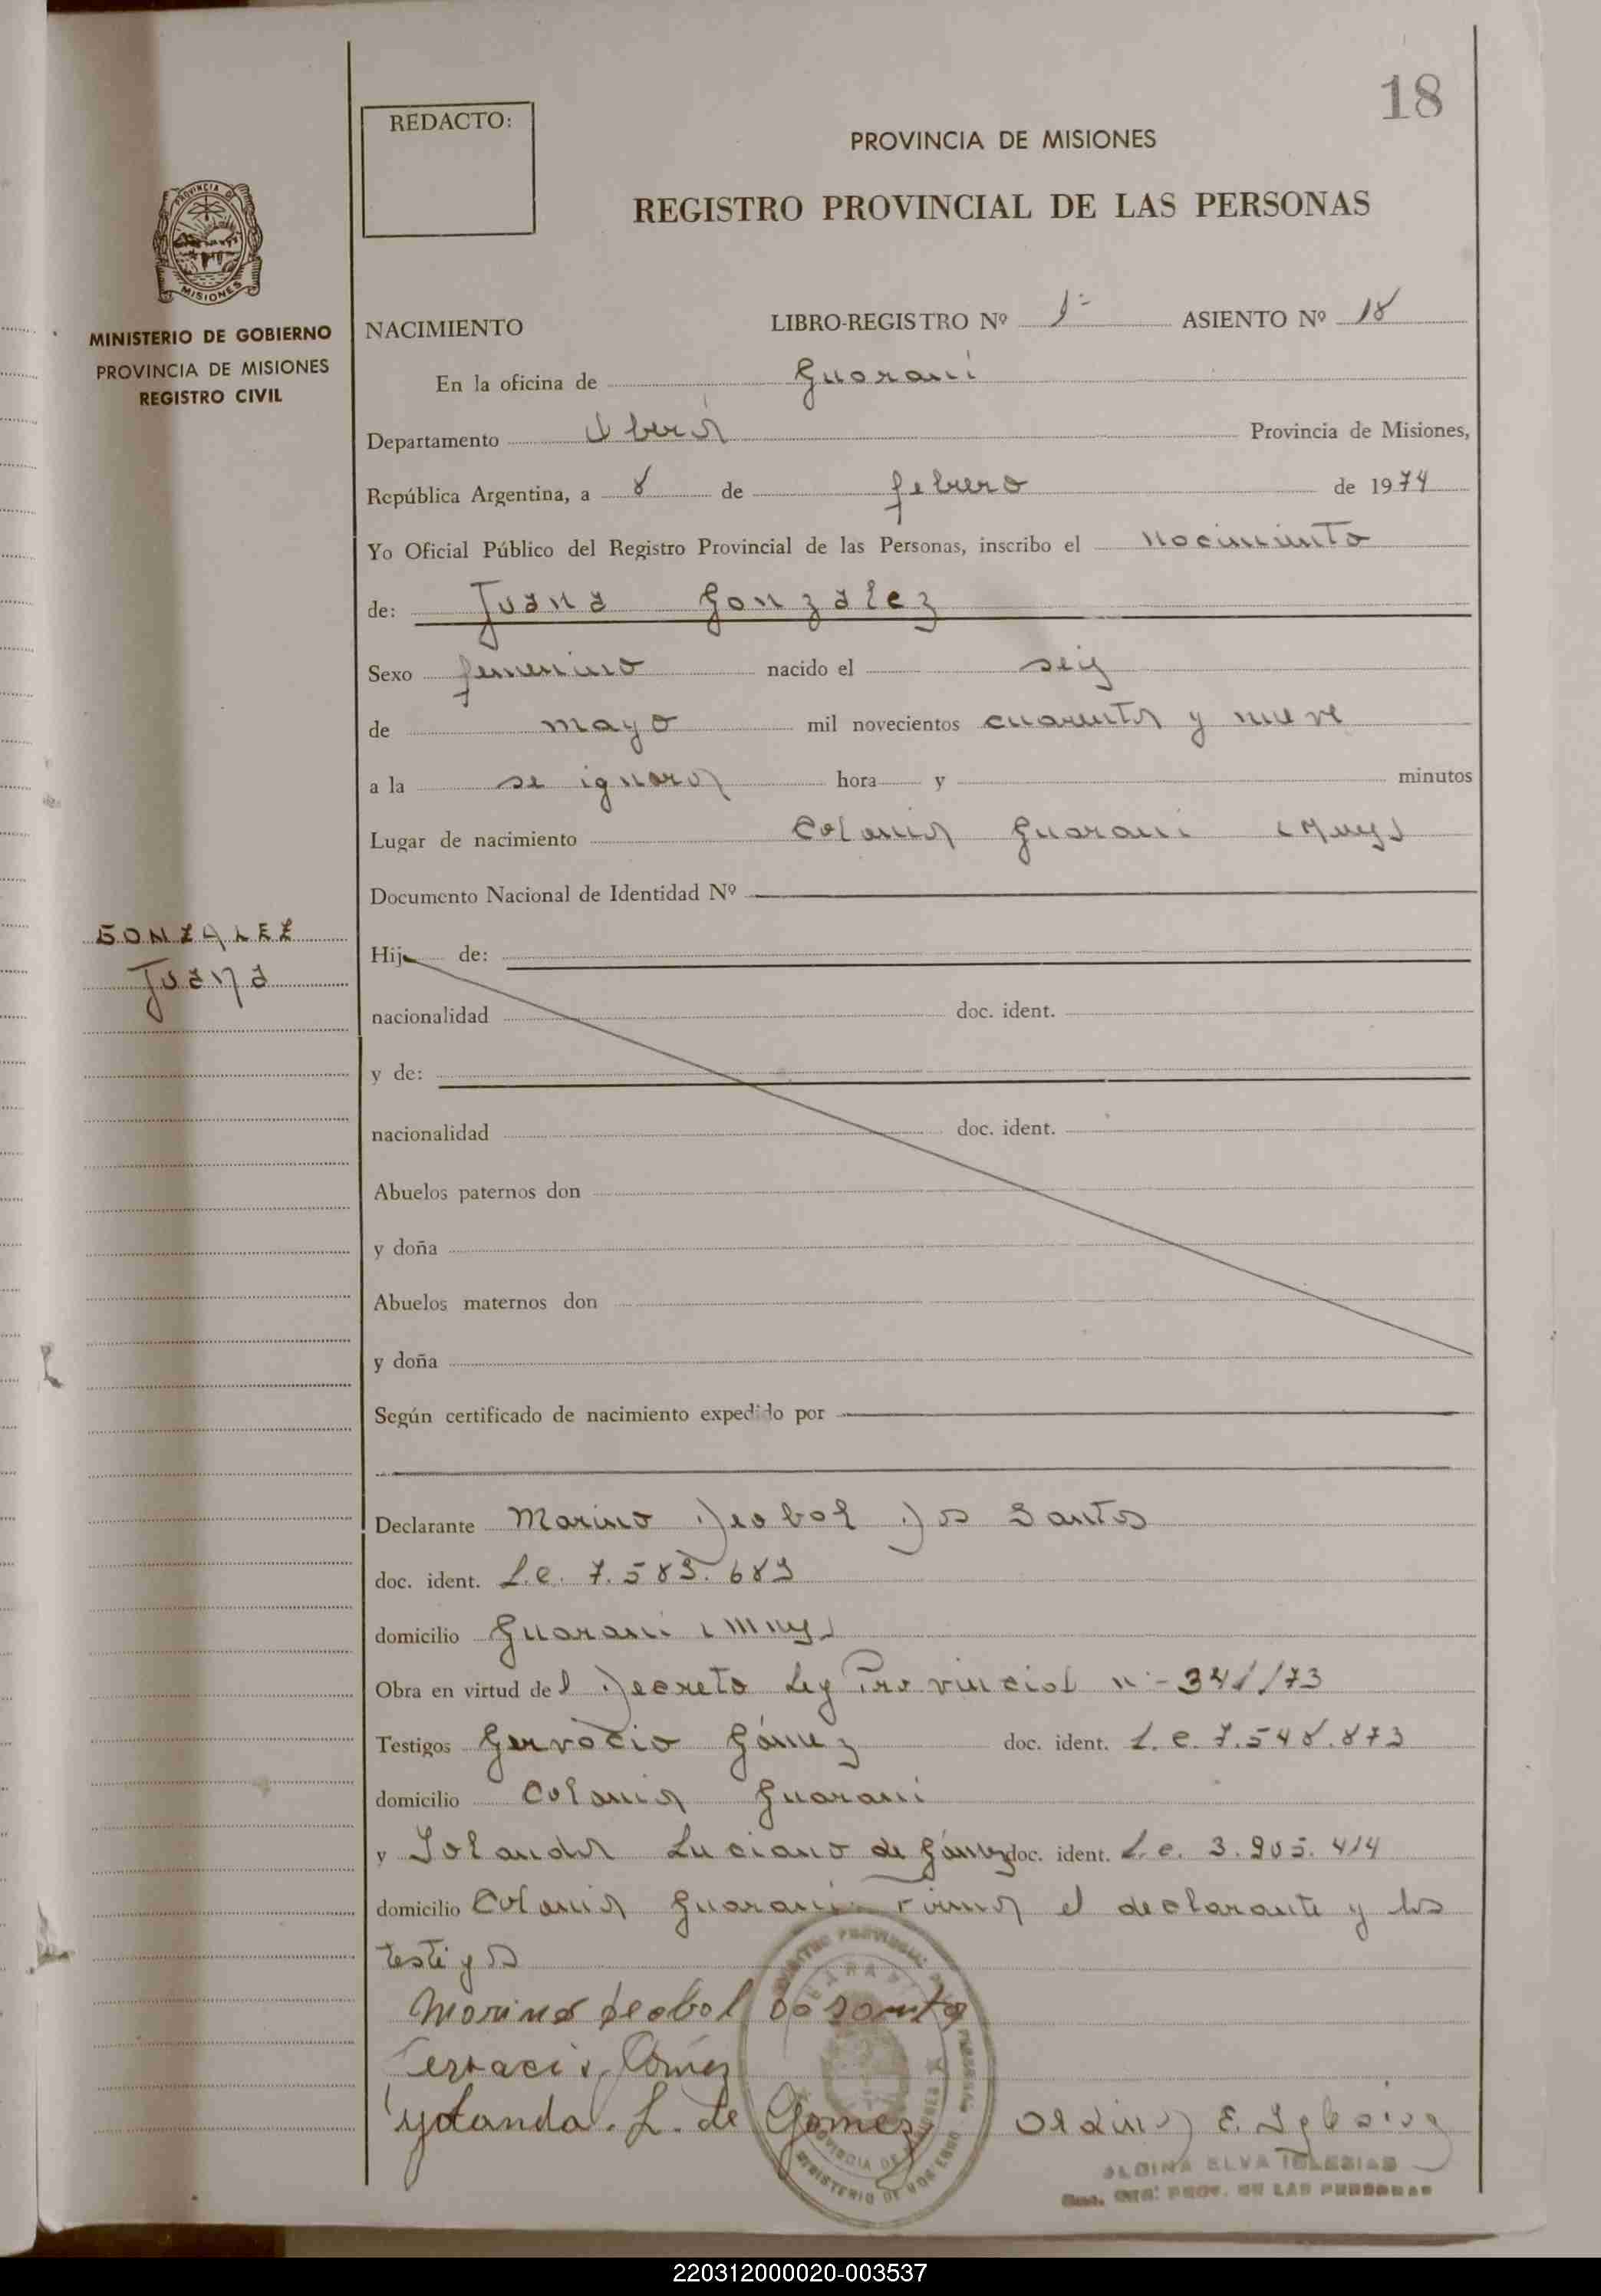 18
REDACTO:
PROVINCIA DE MISIONES
REGISTRO PROVINCIAL DE LAS PERSONAS
PROVINCIA DE
MISIONES
MINISTERIO DE GOBIERNO
PROVINCIA DE MISIONES
REGISTRO CIVIL
NACIMIENTO LIBRO-REGISTRO Nº 1º ASIENTO Nº 18
En la oficina de Guarani
Departamento Oberá Provincia de Misiones,
República Argentina, a 8 de febrero de 1974
Yo Oficial Público del Registro Provincial de las Personas, inscribo el nacimiento
de: Juana Gonzalez
Sexo femenino nacido el seis
de mayo mil novecientos cuarenta y nueve
a la se ignora hora y minutos
Lugar de nacimiento Colonia Guarani (Mnes)
Documento Nacional de Identidad Nº
GONZALEZ
Juana
Hij de:
nacionalidad doc. ident.
y de:
nacionalidad doc. ident.
Abuelos paternos don
y doña
Abuelos maternos don
y doña
Según certificado de nacimiento expedido por
Declarante Marino Deobol Dos Santos
doc. ident. L.e. 7.583.683
domicilio Guarani (Mnes)
Obra en virtud del Decreto Ley Provincial nº 341/73
Testigos Gervacio Gómez doc. ident. L.e. 7.548.873
domicilio Colonia Guarani
y Iolanda Luciano de Gómez doc. ident. L.e. 3.905.414
domicilio Colonia Guarani. Firman el declarante y los
testigos
Marino deobol do santo
Cervacio Gómez
yolanda. L. de Gomez Oldina E. Iglesias
OLDINA ELVA IGLESIAS
PROV. DE LAS PERSONAS
PROVINCIA DE MISIONES
MINISTERIO DE GOBIERNO
220312000020-003537